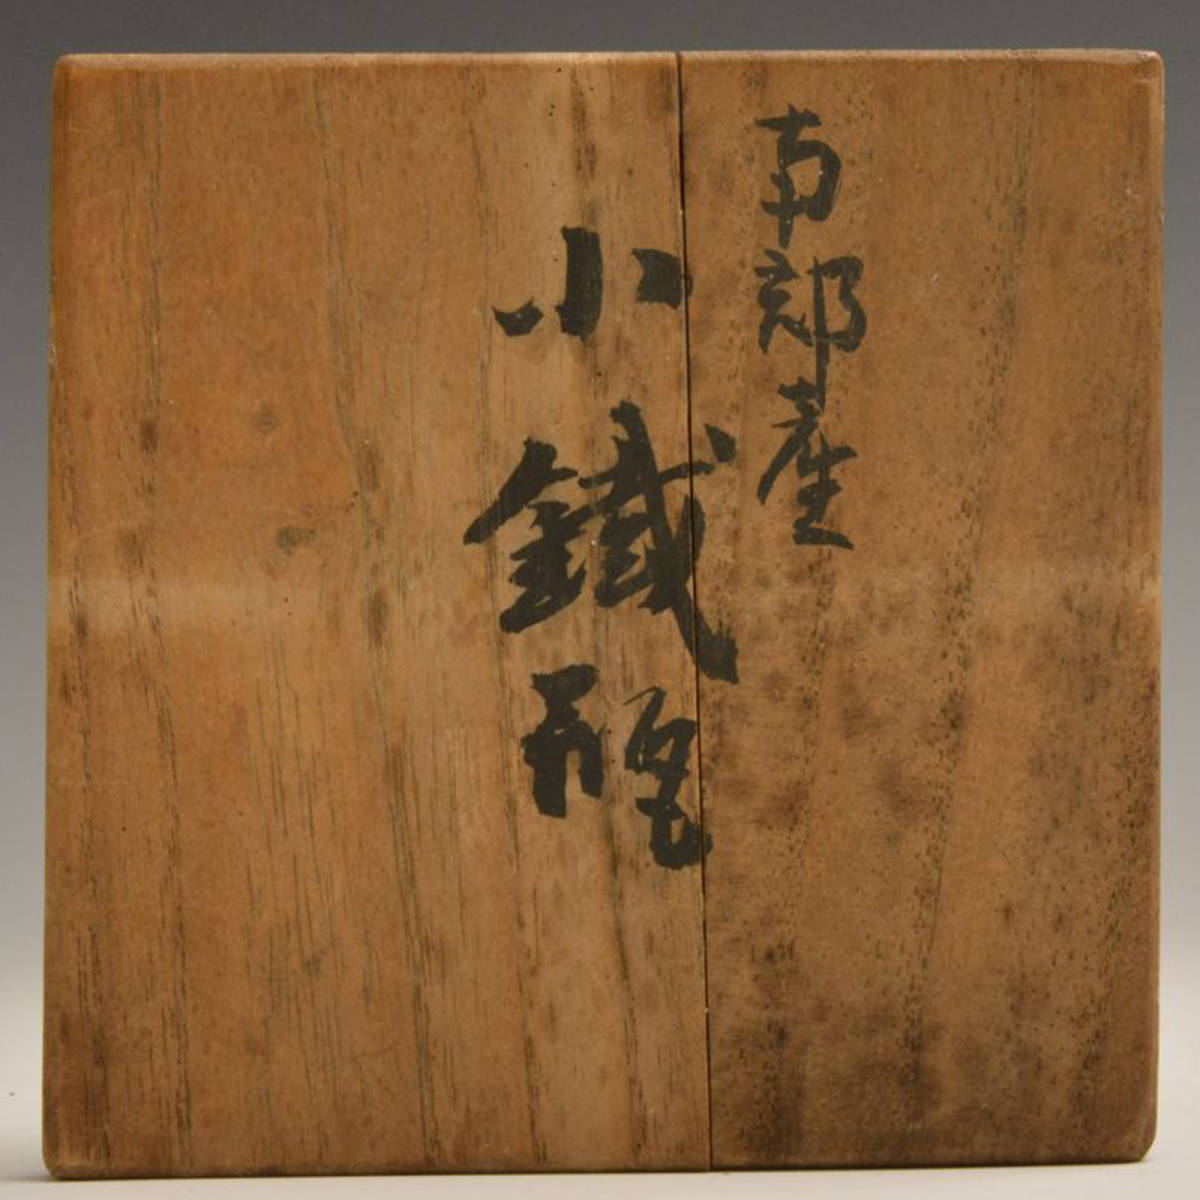 南部産
小鐵瓶